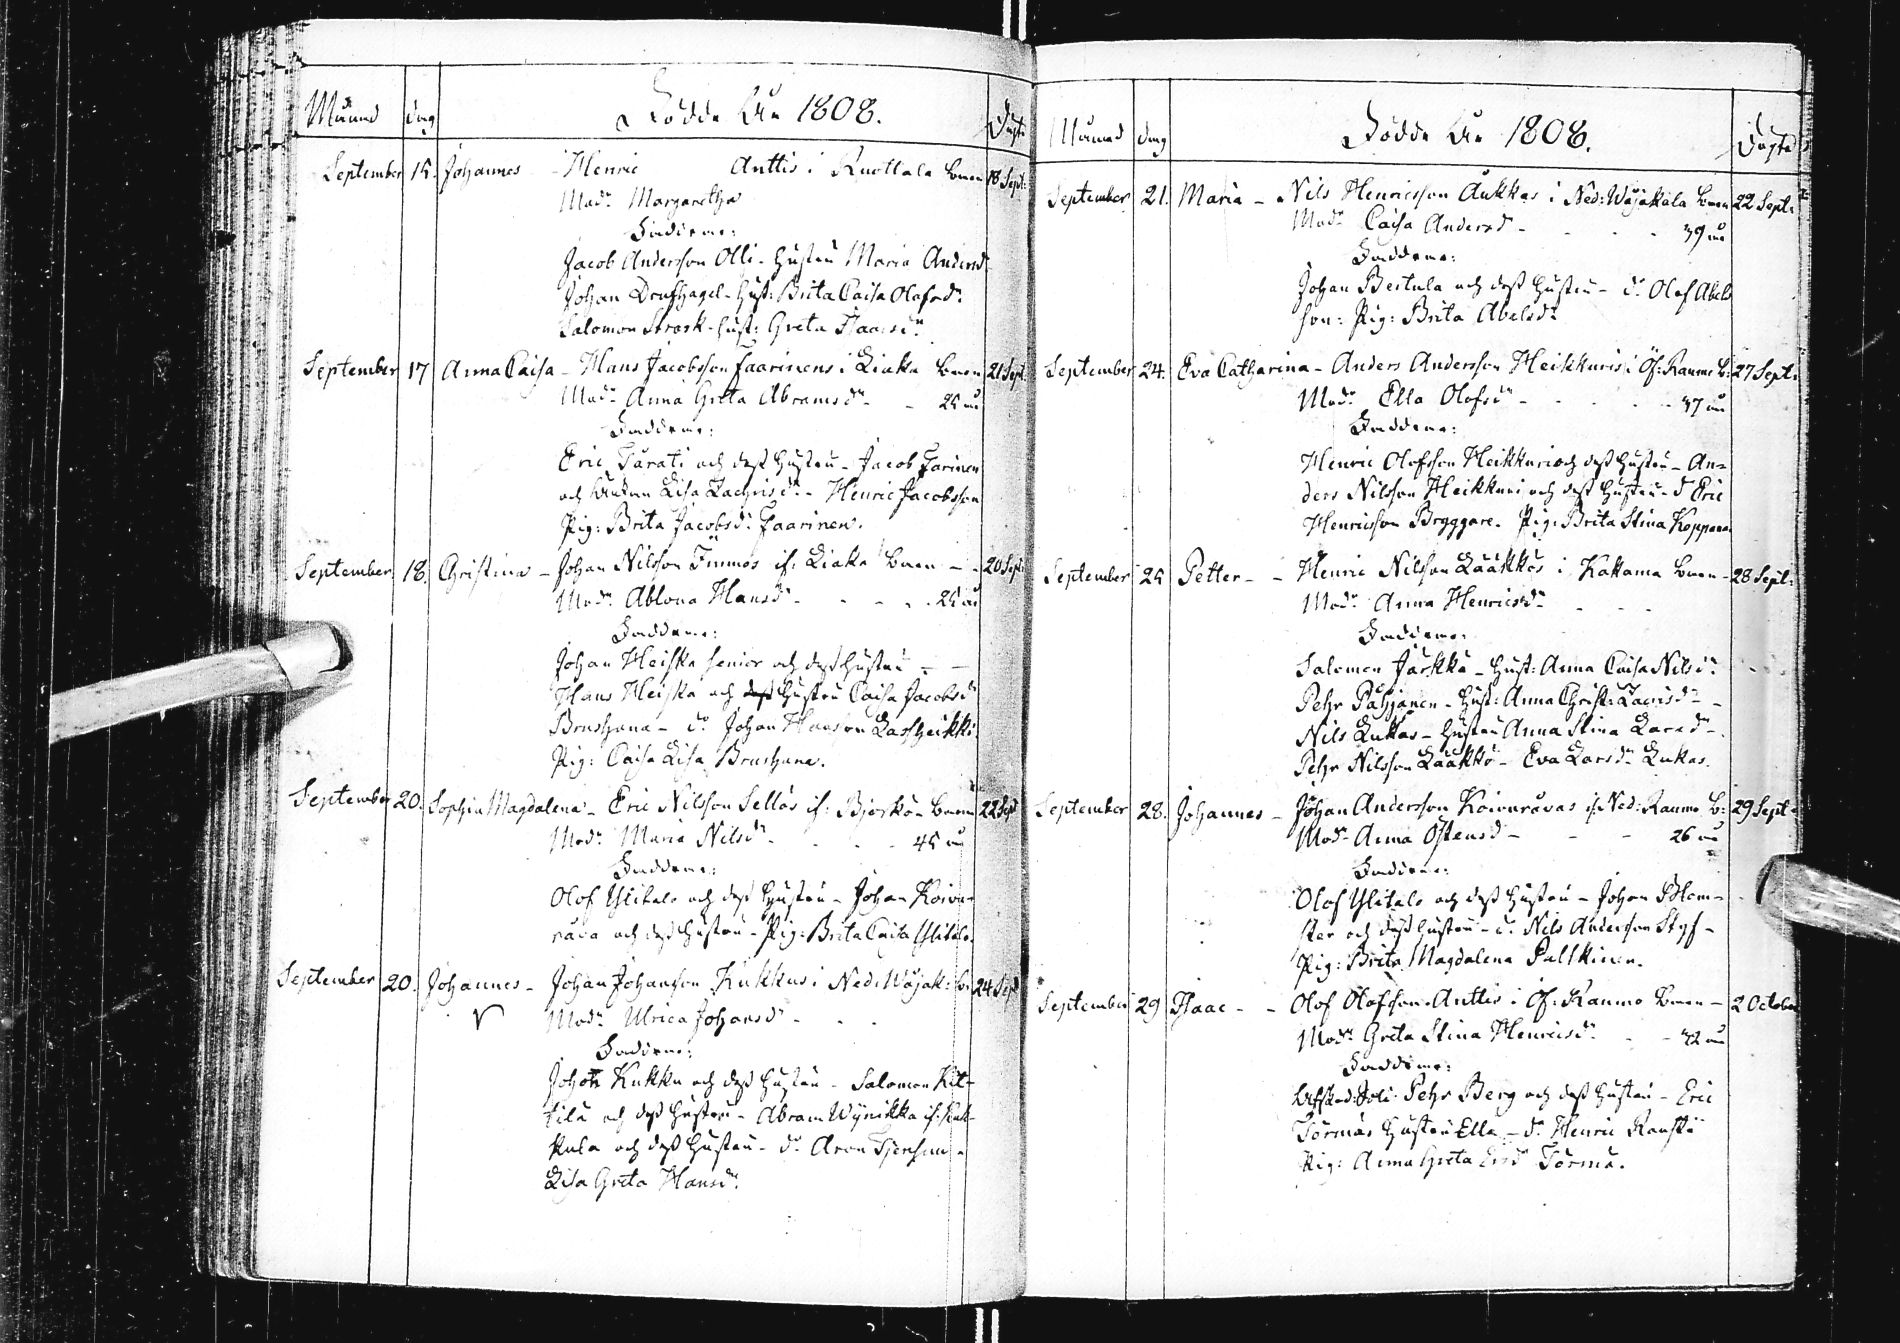 Månad dag Födde År 1808. Döpte
September 15. Johannes - Henric Anttis i Knuttala boen 18 Sept:
Modr Margaretha
Faddrene:
Jacob Andersson Olli - hustru Maria Andersdr
Johan Drufhagel - hust: Brita Caisa Olofsdr
Salomon Strask - hust: Greta Isaacsdr
September 17 Anna Caisa - Hans Jacobsson Faarinens i Liaka boen 21 Sept.
Modr Anna Greta Abramsdr - - 25 år
Faddrene:
Eric Turati och dess hustru - Jacob Farinen
och Lisa Zachrisdr - Henric Jacobsson
Pig: Brita Jacobsdr Faarinen.
September 18. Christina - Johan Nilsson Timmos if: Liaka boen - - 20 Sept:
Modr Ablona Hansdr - - - - 25 år
Faddrene:
Johan Heiska senior och dess hustru - -
Hans Heiska och dess hustru Caisa Jacobsdr
Brushana - dr Johan Hansson Lassheikki
Pig: Caisa Lisa Brushana.
September 20. Sophia Magdalena - Eric Nilsson Sellos if: Björkö - boen 22 Sept
Modr Maria Nilsdr - - - - 45 år
Faddrene:
Olof Ylitalo och dess hustru - Johan Koivu-
rava och dess hustru - Pig: Brita Caisa Ylitalo.
September 20. Johannes - Johan Johansson Kukkus i Ned: Wojak: b: 24 Sept
Modr Ulrica Johansdr - - -
Faddrene:
Johan Kukku och dess hustru - Salomon Kit-
tilä och dess hustru - Abram Wynikka if:
kula och dess hustru - dr Aron
Lisa Greta Hansdr
Månad dag Födde År 1808. Döpte
September 21. Maria - Nils Henricsson Kukkas i Ned: Wojakala boen 22 Sept:
Modr Caisa Andersdr - - - - 39 år
Faddrene:
Johan Bertula och dess hustru - dr Olof Abels
son: Pig: Brita Abelsdr
September 24. Eva Catharina - Anders Andersson Heikkuris i Öf: Raumo b: 27 Sept:
Modr Ella Olofsdr - - - - - 37 år
Faddrene:
Henric Olofsson Heikkuri och dess hustru - An-
ders Nilsson Heikkuri och dess hustru - d Eric
Henricsson Bryggare. Pig: Brita Stina Koppana
September 25 Petter - - Henric Nilsson Lääkkös i Kakkama boen - 28 Sept:
Modr Anna Henricsdr - - -
Faddrene:
Salomon Järkkä - hust: Anna Caisa Nilsdr
Pehr Päyjänen - hust: Anna Christ: Larsdr - -
Nils Lukkas - hustru Anna Stina Larsdr -
Pehr Nilsson Lääkkö - Eva Larsdr Lukas.
September 28. Johannes - Johan Andersson Koivuravas if: Ned: Raumo b: 29 Sept:
Modr Anna Östensdr - - - 26 år
Faddrene:
Olof Ylitalo och dess hustru - Johan Blom-
ster och dess hustru - dr Nils Andersson Styf -
Pig: Brita Magdalena Palkkinen.
September 29 Isaac - - Olof Olofsson Anttis i Öf: Raumo boen - 2 October
Modr Greta Stina Henricsdr - - 32 år
Faddrene:
Afsked: Sold: Pehr Berg och dess hustru - Eric
Törmäs hustru Ella - dr Henric
Pig: Anna Greta Ersdr Törmä.